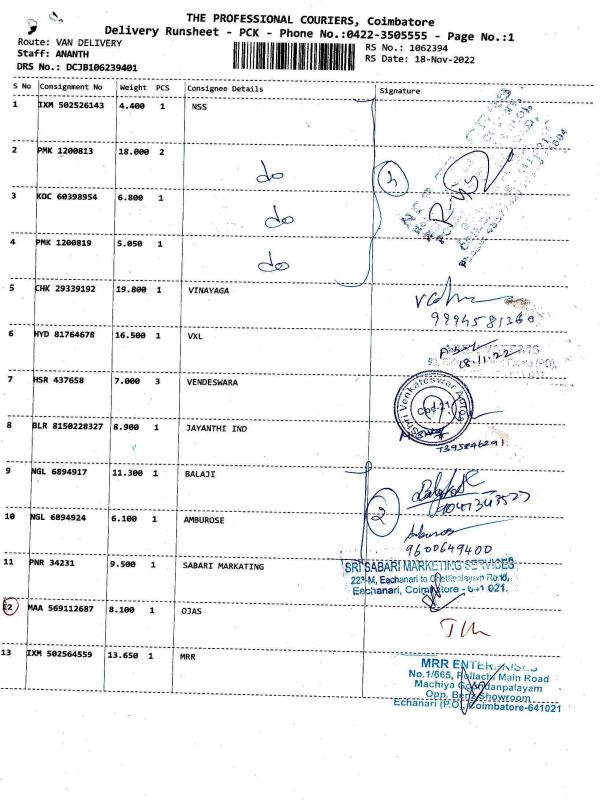 THE PROFESSIONAL COURIERS, Coimbatore
Delivery Runsheet - PCK - Phone No.:0422-3505555 - Page No.:1
Route: VAN DELIVERY
RS No.: 1062394
Staff: ANANTH
RS Date: 18-Nov-2022
DRS No.: DCJB106239401
S No Consignment No Weight PCS Consignee Details Signature
1 IXM 502526143 4.400 1 NSS
2 PMK 1200813 18.000 2
do
3 KOC 60398954 6.800 1
do
4 PMK 1200819 5.050 1
do
5 CHK 29339192 19.800 1 VINAYAGA
9294581360
6 HYD 81764678 16.500 1 VXL
18.11.22
7 HSR 437658 7.000 3 VENDESWARA
8 BLR 8150228327 8.900 1 JAYANTHI IND
7395846291
9 NGL 6894917 11.300 1 BALAJI
2
10 NGL 6894924 6.100 1 AMBUROSE
9600649400
11 PNR 34231 9.500 1 SABARI MARKATING
SRI SABARI MARKETING SERVICES
223-M, Eachanari to Chettipalayam Road,
Eachanari, Coimbatore - 641 021.
12 MAA 569112687 8.100 1 OJAS
13 IXM 502564559 13.650 1 MRR
MRR ENTERPRISES
No.1/665, Pollachi Main Road
Machiya Goundanpalayam
Opp. Benz Showroom
Echanari (P.O), Coimbatore-641021